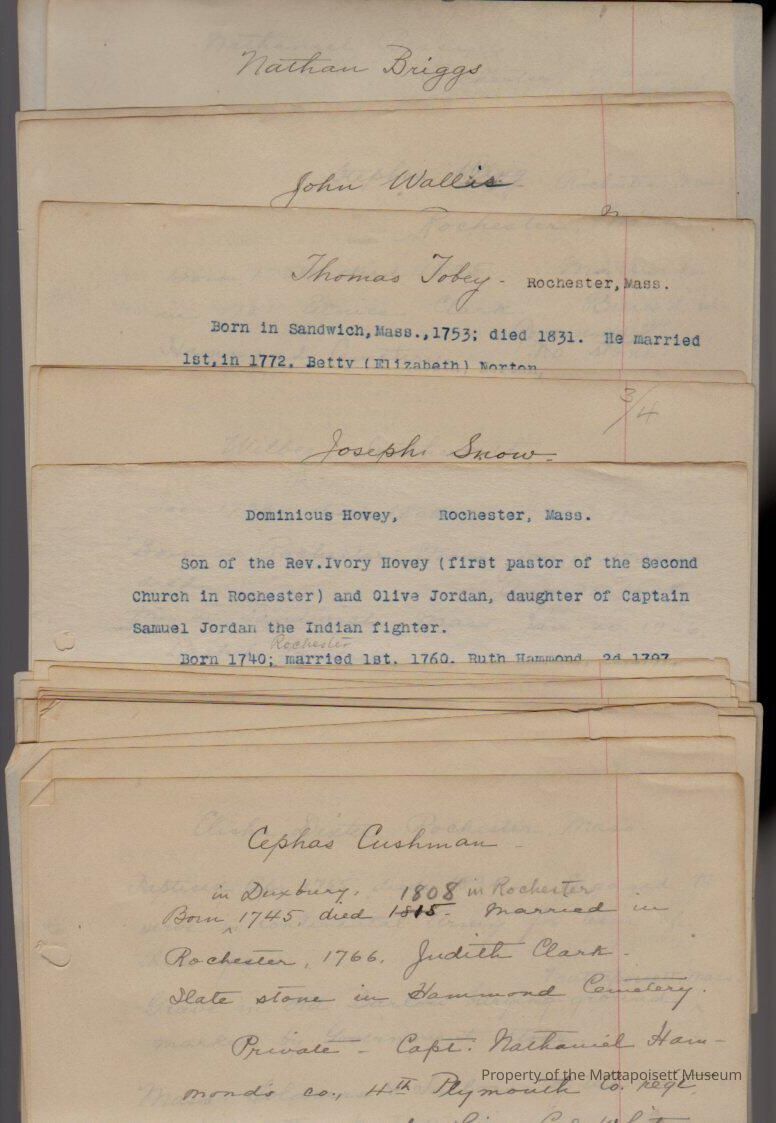 Nathan Briggs
John Wallis
Thomas Tobey - Rochester, Mass.
Born in Sandwich, Mass., 1753; died 1831. He married
1st, in 1772. Betty (Elizabeth) Norton,
3/4
Joseph Snow -
Dominicus Hovey, Rochester, Mass.
Son of the Rev. Ivory Hovey (first pastor of the Second
Church in Rochester) and Olive Jordan, daughter of Captain
Samuel Jordan the Indian fighter.
Rochester
Born 1740; married 1st. 1760. Ruth Hammond 2d 1797.
Cephas Cushman -
in Duxbury. 1808 in Rochester
Born ^ 1745 died 1815. Married in
Rochester, 1766. Judith Clark.
Slate stone in Hammond Cemetery.
Private - Capt. Nathaniel Ham-
monds co., 4th Plymouth Co. regt,
Property of the Mattapoisett Museum